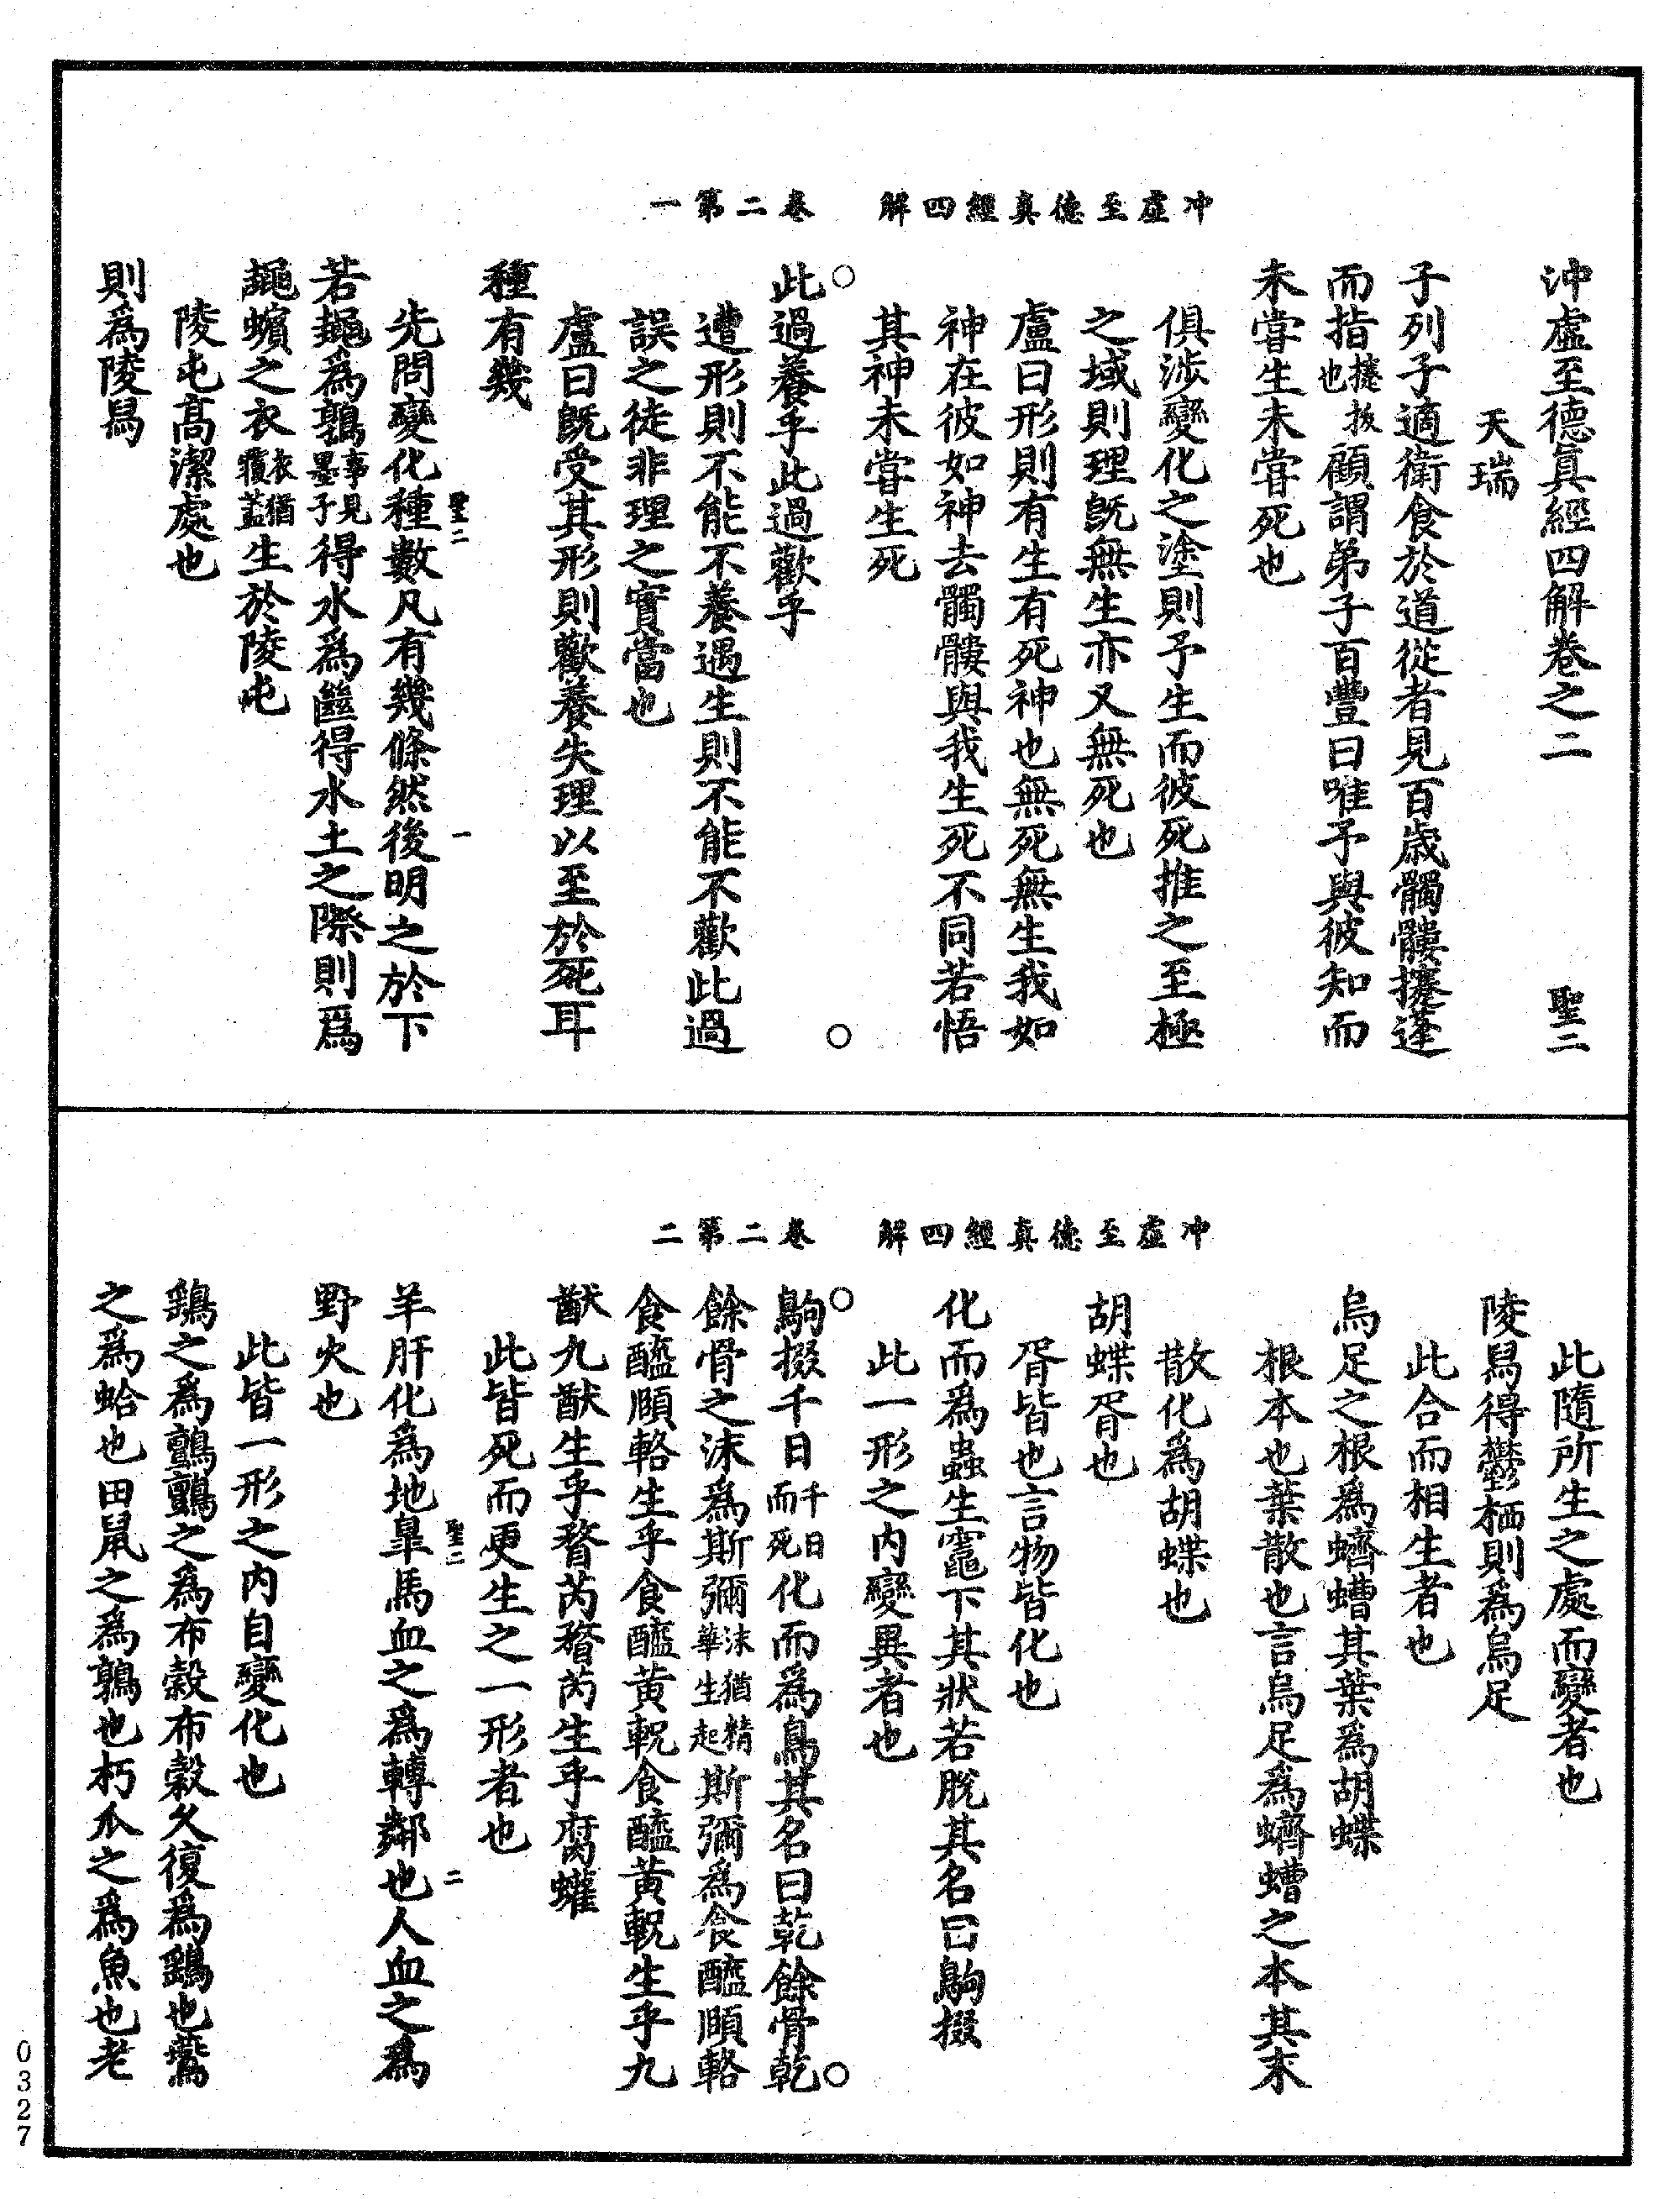 冲虛至德真經四解　卷二第一
沖虛至德眞經四解卷之二　聖二
天瑞
子列子適衛食於道從者見百歲髑髏攓蓬
而指攓拔也顧謂弟子百豐曰唯予與彼知而
未嘗生未嘗死也
俱涉變化之塗則予生而彼死推之至極
之域則理旣無生亦又無死也
盧曰形則有生有死神也無死無生我如
神在彼如神去髑髏與我生死不同若悟
其神未嘗生死
此過養乎此過歡乎
遭形則不能不養遇生則不能不歡此過
誤之徒非理之實當也
盧曰旣受其形則歡養失理以至於死耳
種有幾
聖二　一
先問變化種數凡有幾條然後明之於下
若䵷爲鶉事見墨子得水爲㡭得水土之際則爲
䵷蠙之衣衣猶覆蓋生於陵屯
陵屯高潔處也
則爲陵舄
冲虛至德真經四解　卷二第二
此隨所生之處而變者也
陵舄得鬱栖則爲烏足
此合而相生者也
烏足之根爲蠐螬其葉爲胡蝶
根本也葉散也言烏足爲蠐螬之本其末
散化爲胡蝶也
胡蝶胥也
胥皆也言物皆化也
化而爲蟲生竈下其狀若脫其名曰鴝掇
此一形之內變異者也
鴝掇千日千日而死化而爲鳥其名曰乾餘骨乾
餘骨之沫爲斯彌沫猶精華生起斯彌爲食醯頤輅
食醯頤輅生乎食醯黃軦食醯黃軦生乎九
猷九猷生乎瞀芮瞀芮生乎腐蠸
此皆死而更生之一形者也
聖二　二
羊肝化爲地皐馬血之爲轉鄰也人血之爲
野火也
此皆一形之內自變化也
鷂之爲鸇鸇之爲布穀布穀久復爲鷂也鷰
之爲蛤也田鼠之爲鶉也朽瓜之爲魚也老
0327